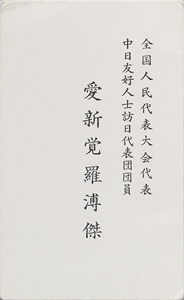 全国人民代表大会代表
中日友好人士訪日代表団団員
愛新覚羅溥傑